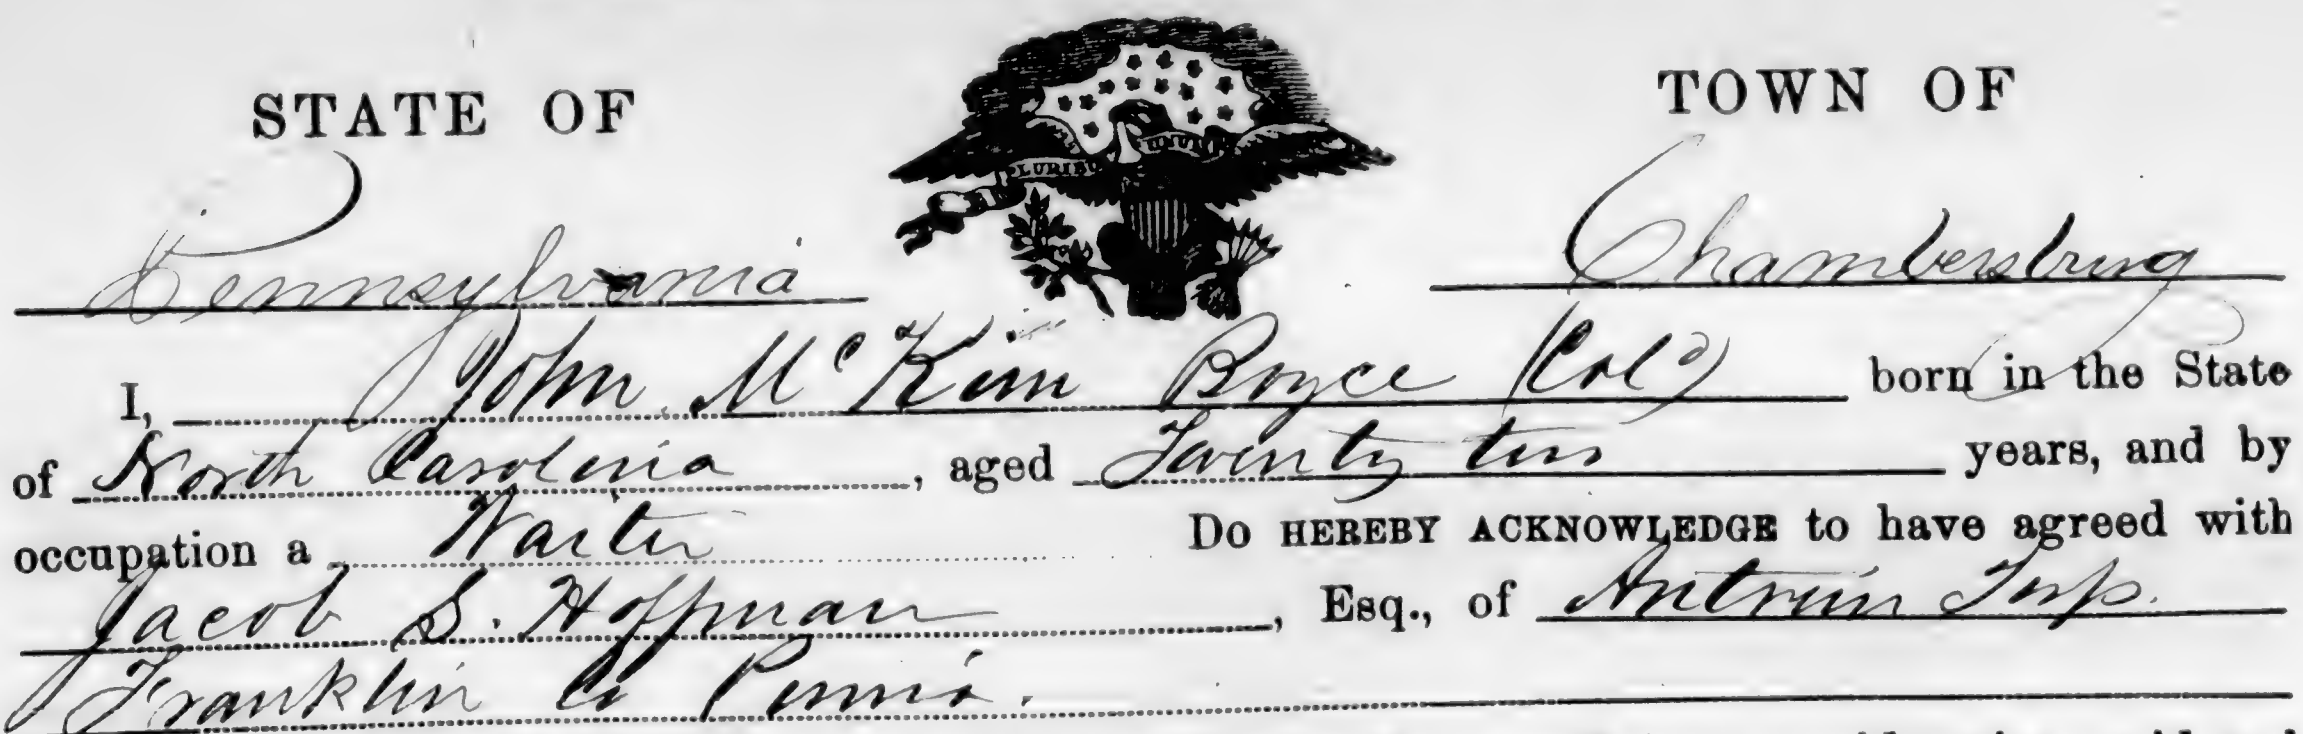 STATE OF
TOWN OF
PLURIBUS UNUM
Pennsylvania
Chambersburg
I, John McKim Boyce (Cold) born in the State
of North Carolina, aged Twenty two years, and by
occupation a Waiter Do HEREBY ACKNOWLEDGE to have agreed with
Jacob S. Hoffman, Esq., of Antrim Twp.
Franklin Co Penna.